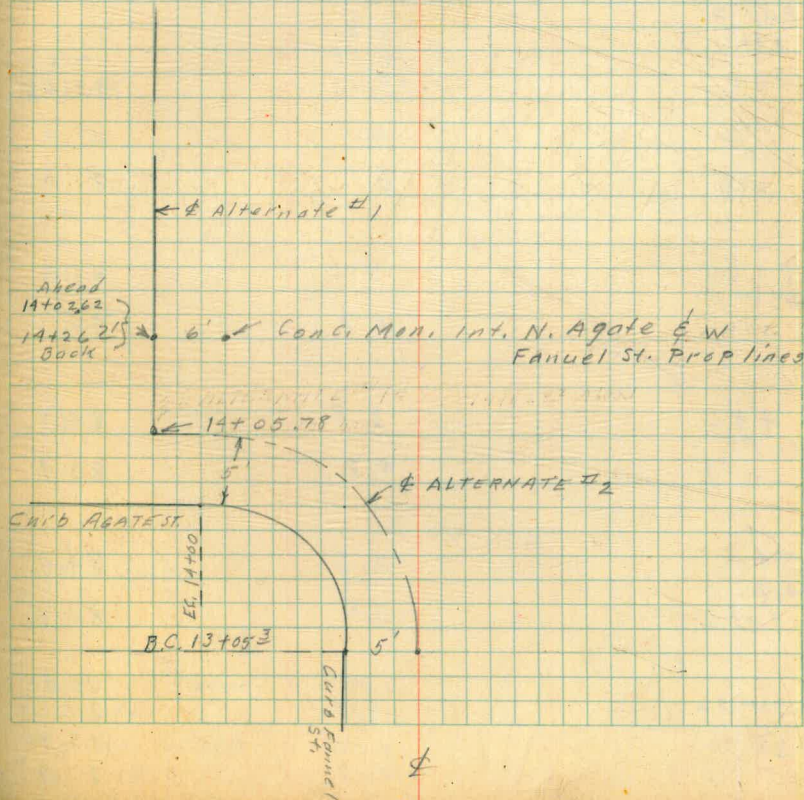 ℄ Alternate #1
Ahead
14+02.62
14+26.21
Back
6'
Conc. Mon. Int. N. Agate & W
Fanuel St. Prop lines
14+05.78
5'
℄ ALTERNATE #2
Curb AGATE ST.
EC. 14+00
B.C. 13+05 3
5'
Curb Fanuel
St.
℄